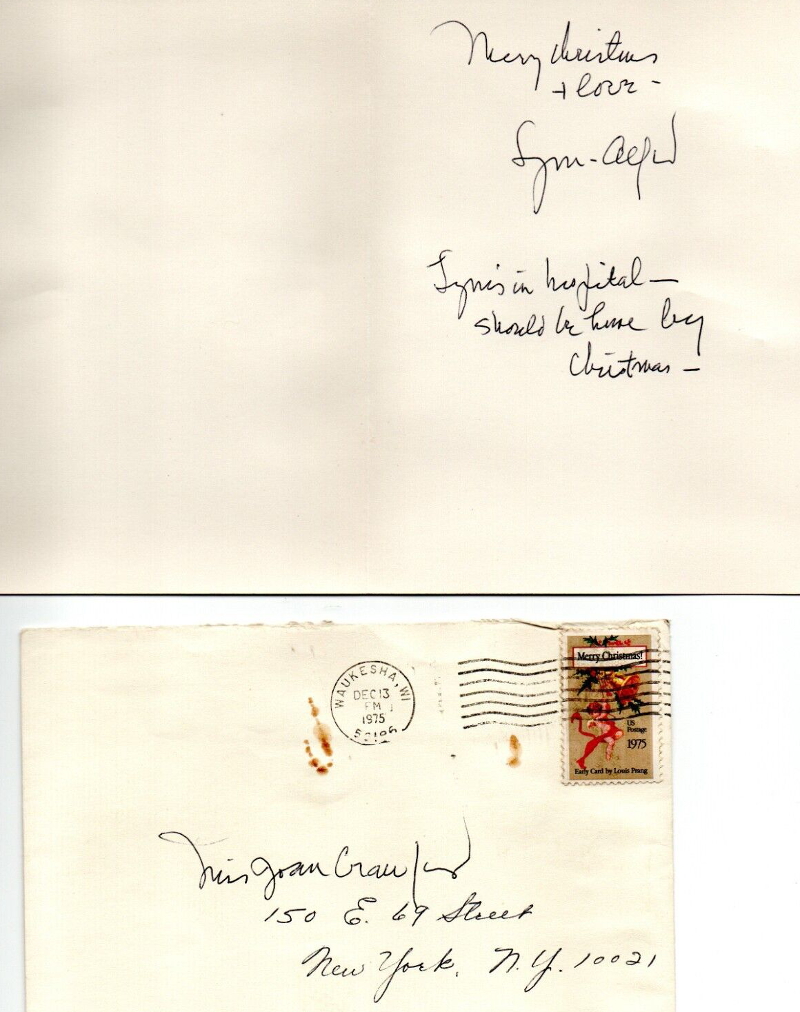 Merry Christmas
+ love -
Lynn - Alfred
Lynn's in hospital —
should be home by
Christmas —
WAUKESHA, WI
DEC 13
PM
1975
Merry Christmas!
US
Postage
1975
Early Card by Louis Prang
Miss Joan Crawford
150 E. 69 Street
New York, N.Y. 10021